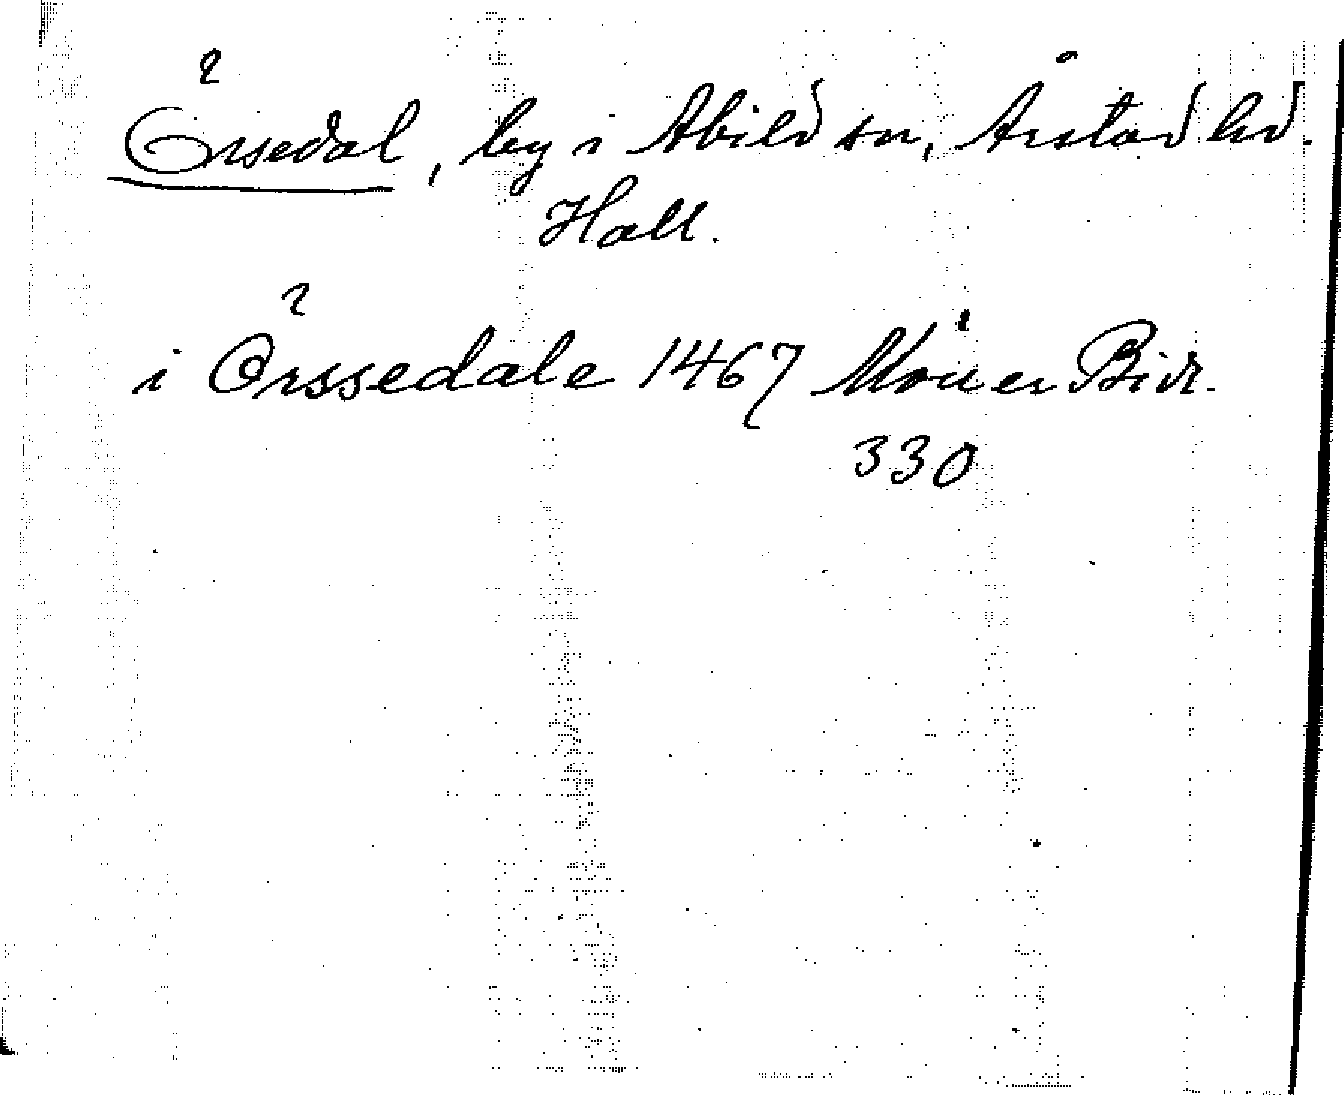 Örsedal, by i Abild sn, Årstad hd.
Hall.
i Örssedale 1467 Möller Bidr.
330